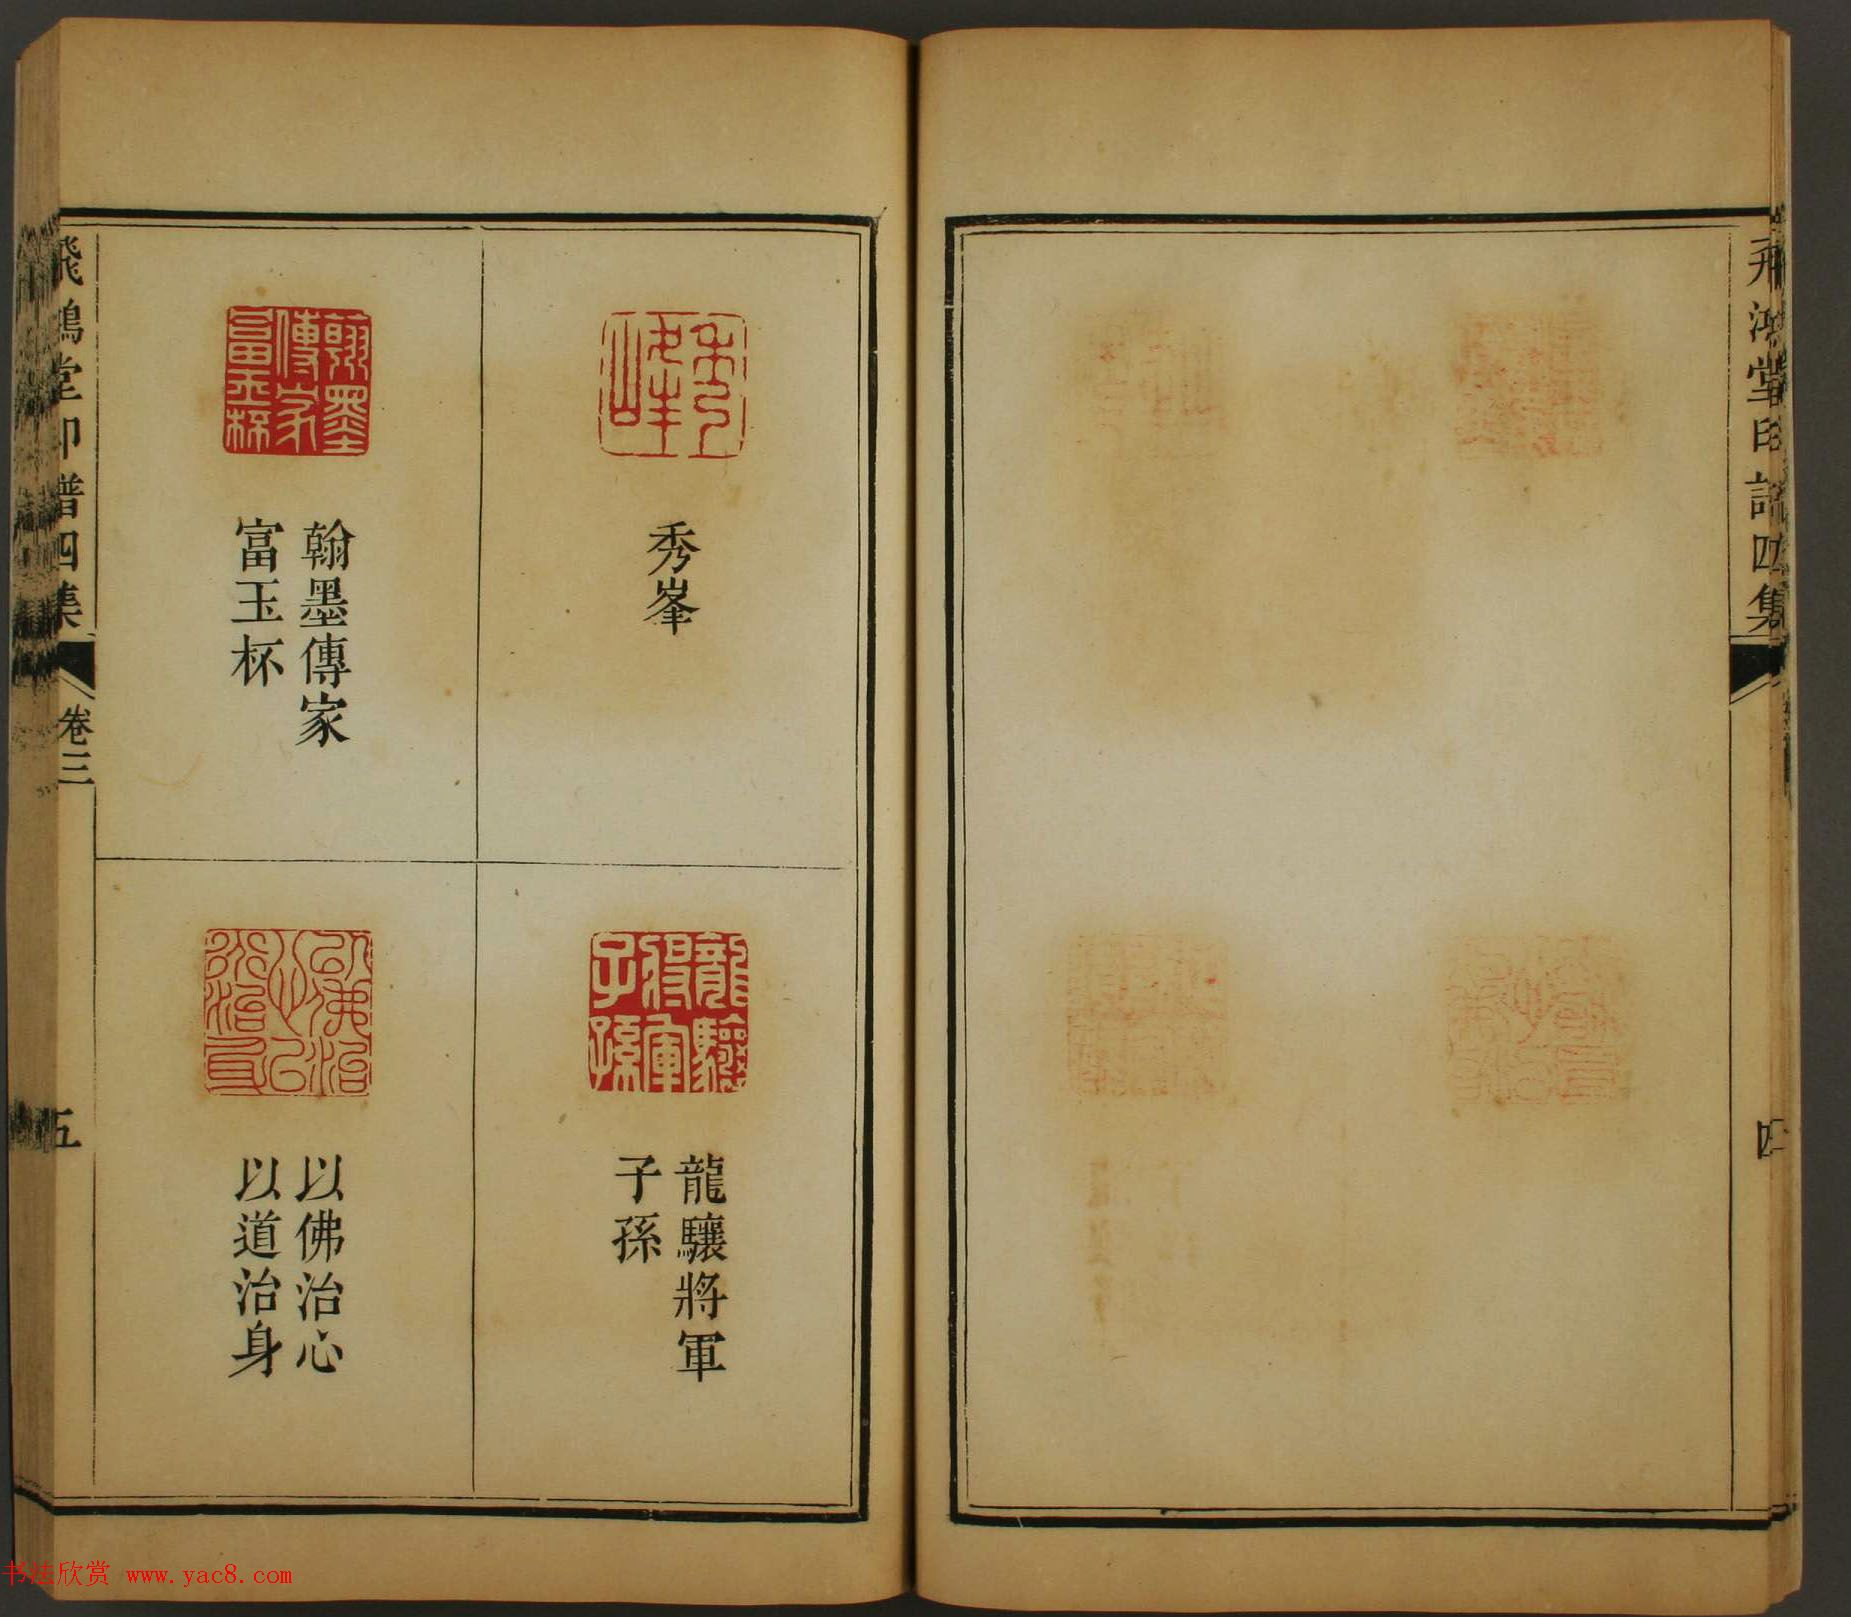 飛鴻堂印譜四集
四
秀峯
龍驤將軍
子孫
翰墨傳家
富玉杯
以佛治心
以道治身
飛鴻堂印譜四集
卷三
五
书法欣赏 www.yac8.com